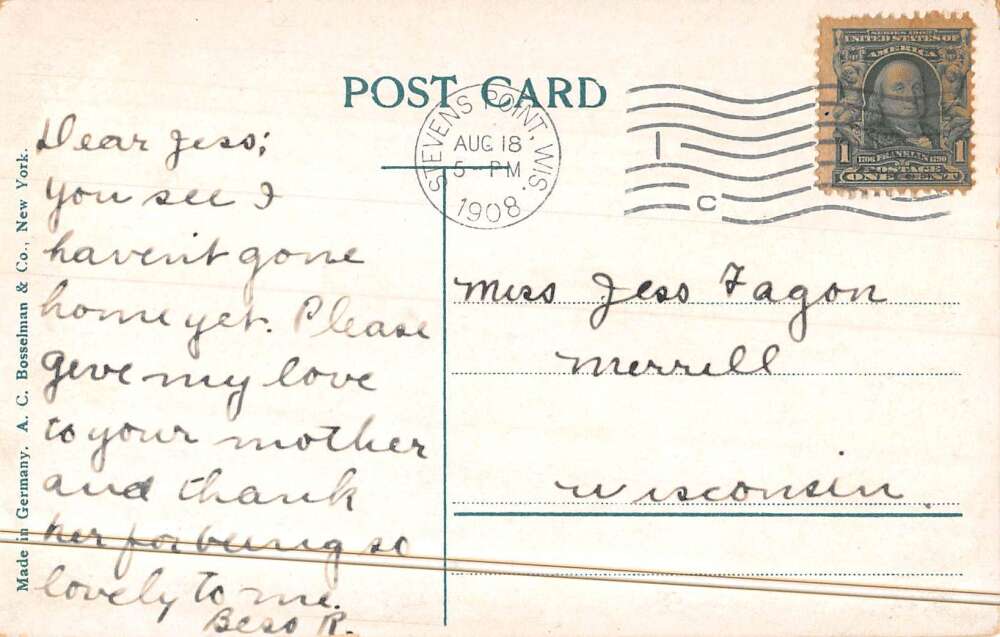 POST CARD
STEVENS POINT, WIS.
AUG 18
5 - PM
1908
1
C
SERIES 1902
UNITED STATES OF
AMERICA
1 1706 FRANKLIN 1790 1
POSTAGE
ONE CENT
Dear Jess;
You see I
haven't gone
home yet. Please
give my love
to your mother
and thank
her for being so
lovely to me.
Bess R.
Miss Jess Fagon
Merrill
Wisconsin.
Made in Germany. A. C. Bosselman & Co., New York.